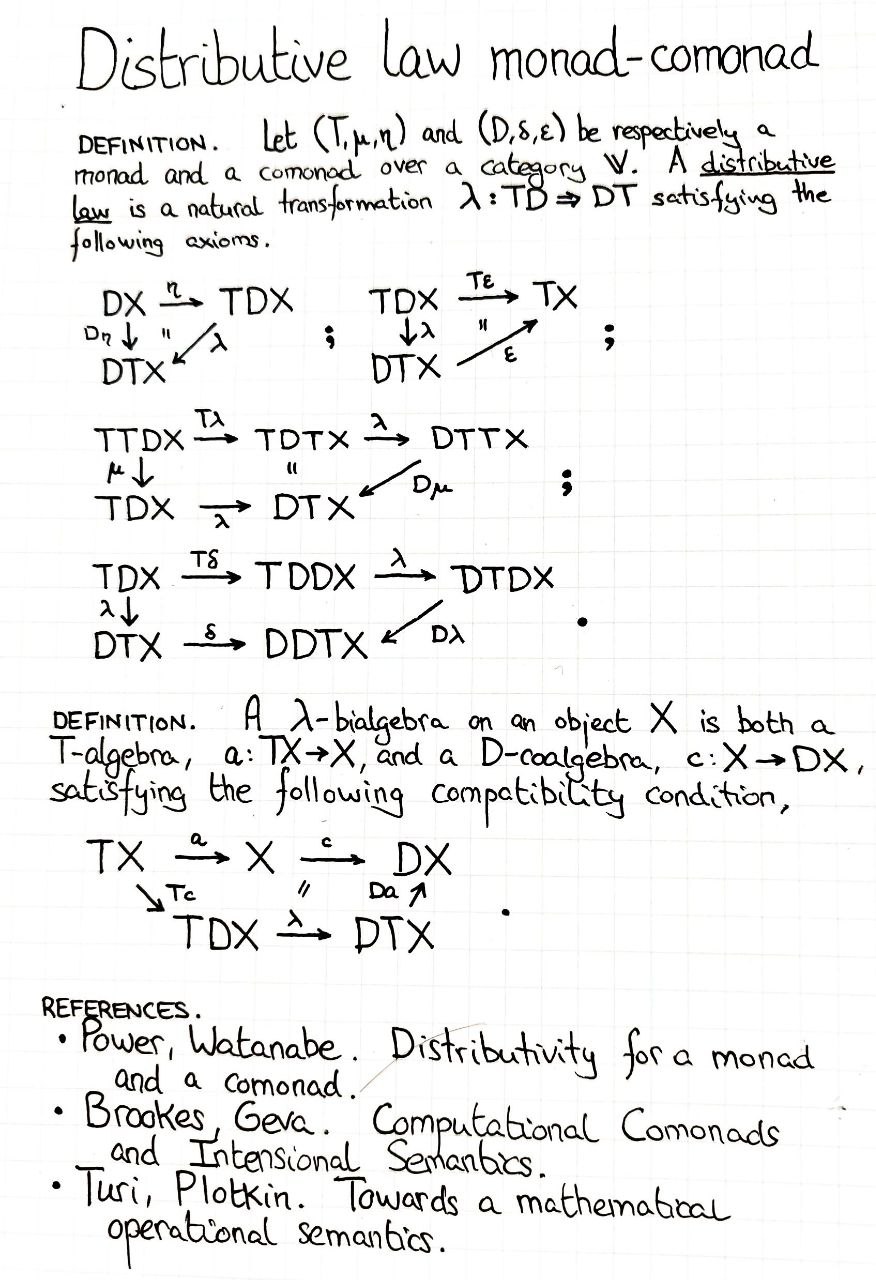 Distributive law monad-comonad
DEFINITION. Let (T,μ,η) and (D,δ,ε) be respectively a
monad and a comonad over a category V. A distributive
law is a natural transformation λ:TD⇒DT satisfying the
following axioms.
DX →η TDX ; TDX →Tε TX ;
Dη↓ " ↙λ ↓λ " ↗ε
DTX DTX
TTDX →Tλ TDTX →λ DTTX
μ↓ " ↙Dμ ;
TDX →λ DTX
TDX →Tδ TDDX →λ DTDX
λ↓ ↙Dλ .
DTX →δ DDTX
DEFINITION. A λ-bialgebra on an object X is both a
T-algebra, a:TX→X, and a D-coalgebra, c:X→DX,
satisfying the following compatibility condition,
TX →a X →c DX
↘Tc " Da↑ .
TDX →λ DTX
REFERENCES.
• Power, Watanabe. Distributivity for a monad
and a comonad.
• Brookes, Geva. Computational Comonads
and Intensional Semantics.
• Turi, Plotkin. Towards a mathematical
operational semantics.